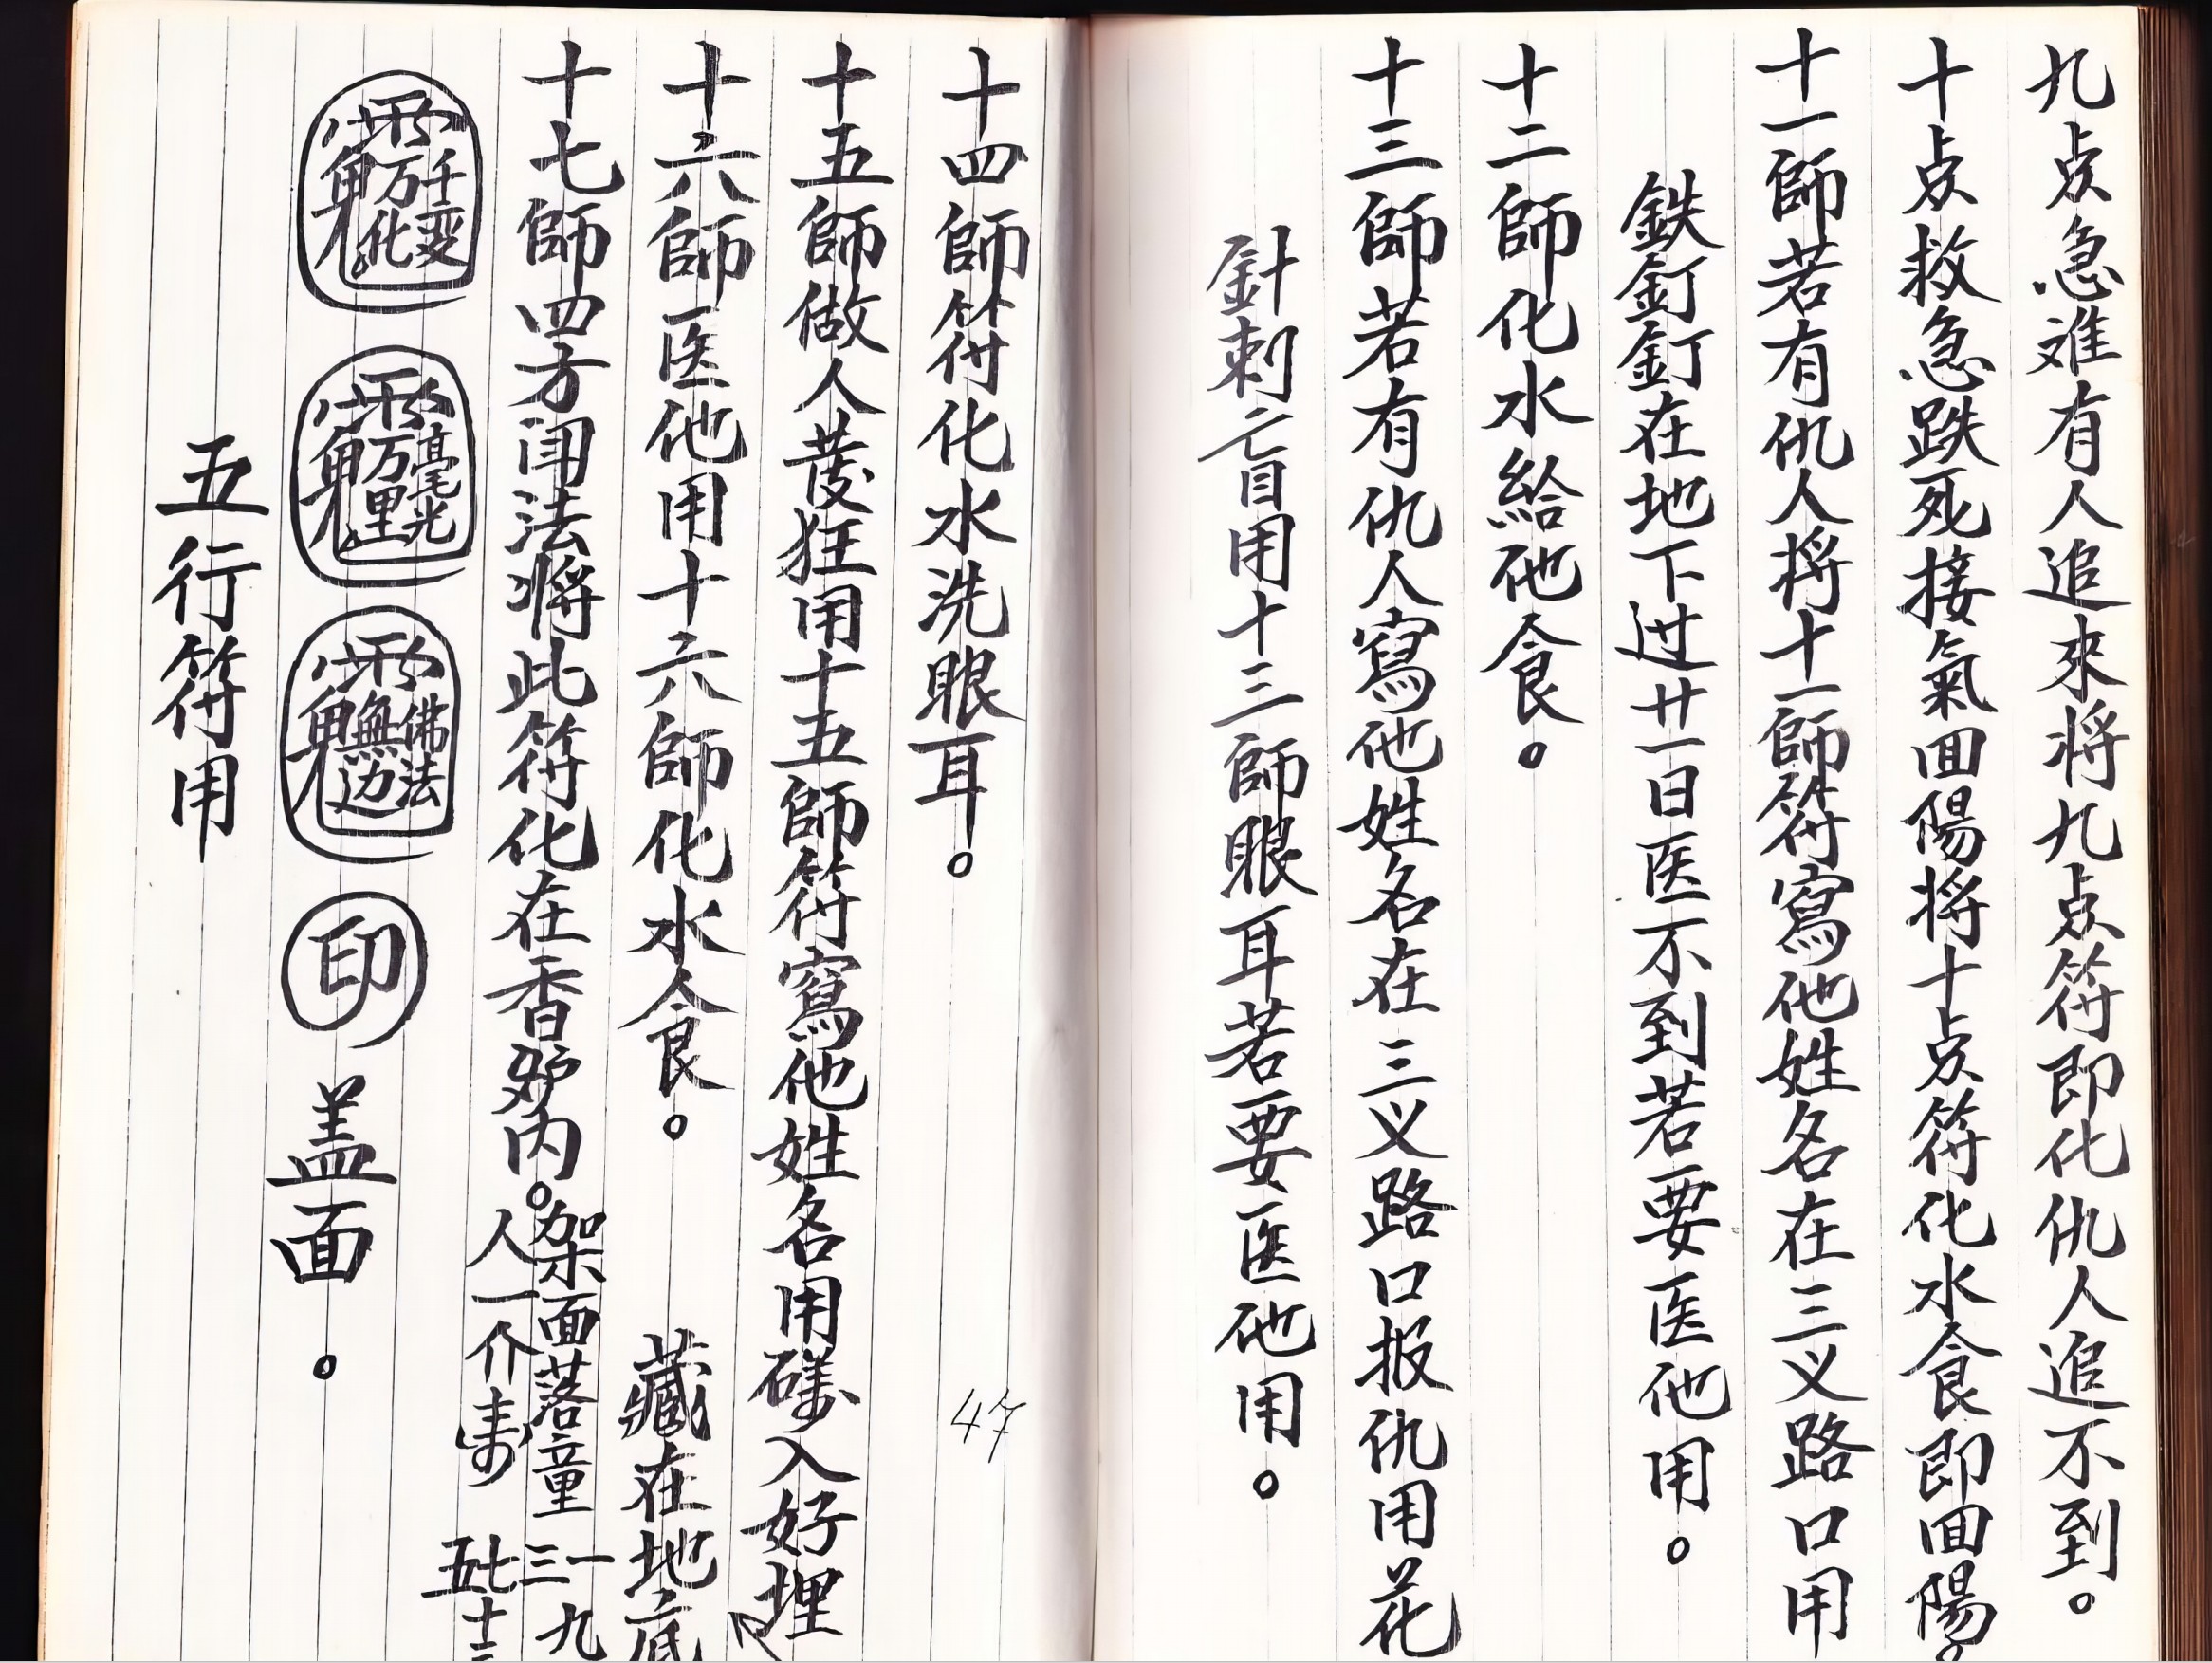 九点急难有人追來将九点符即化仇人追不到。
十点救急跌死接氣囬陽将十点符化水食即囬陽。
十一師若有仇人将十一師符寫他姓名在三义路口用
鉄釘釘在地下过廿一日医不到若要医他用。
十二師化水給他食。
十三師若有仇人寫他姓名在三义路口报仇用花
針刺二目用十三師眼耳若要医他用。
十四師符化水洗眼耳。
47
十五師做人發狂用十五師符寫他姓名用入好埋
藏在地底
十六師医他用十六師化水食。
十七師四方闻法将此符化在香炉内。
架面落童
人一介
一三
七五
九
十三
千变
万化
毫光
万里
佛法
無边
印
盖面。
五行符用